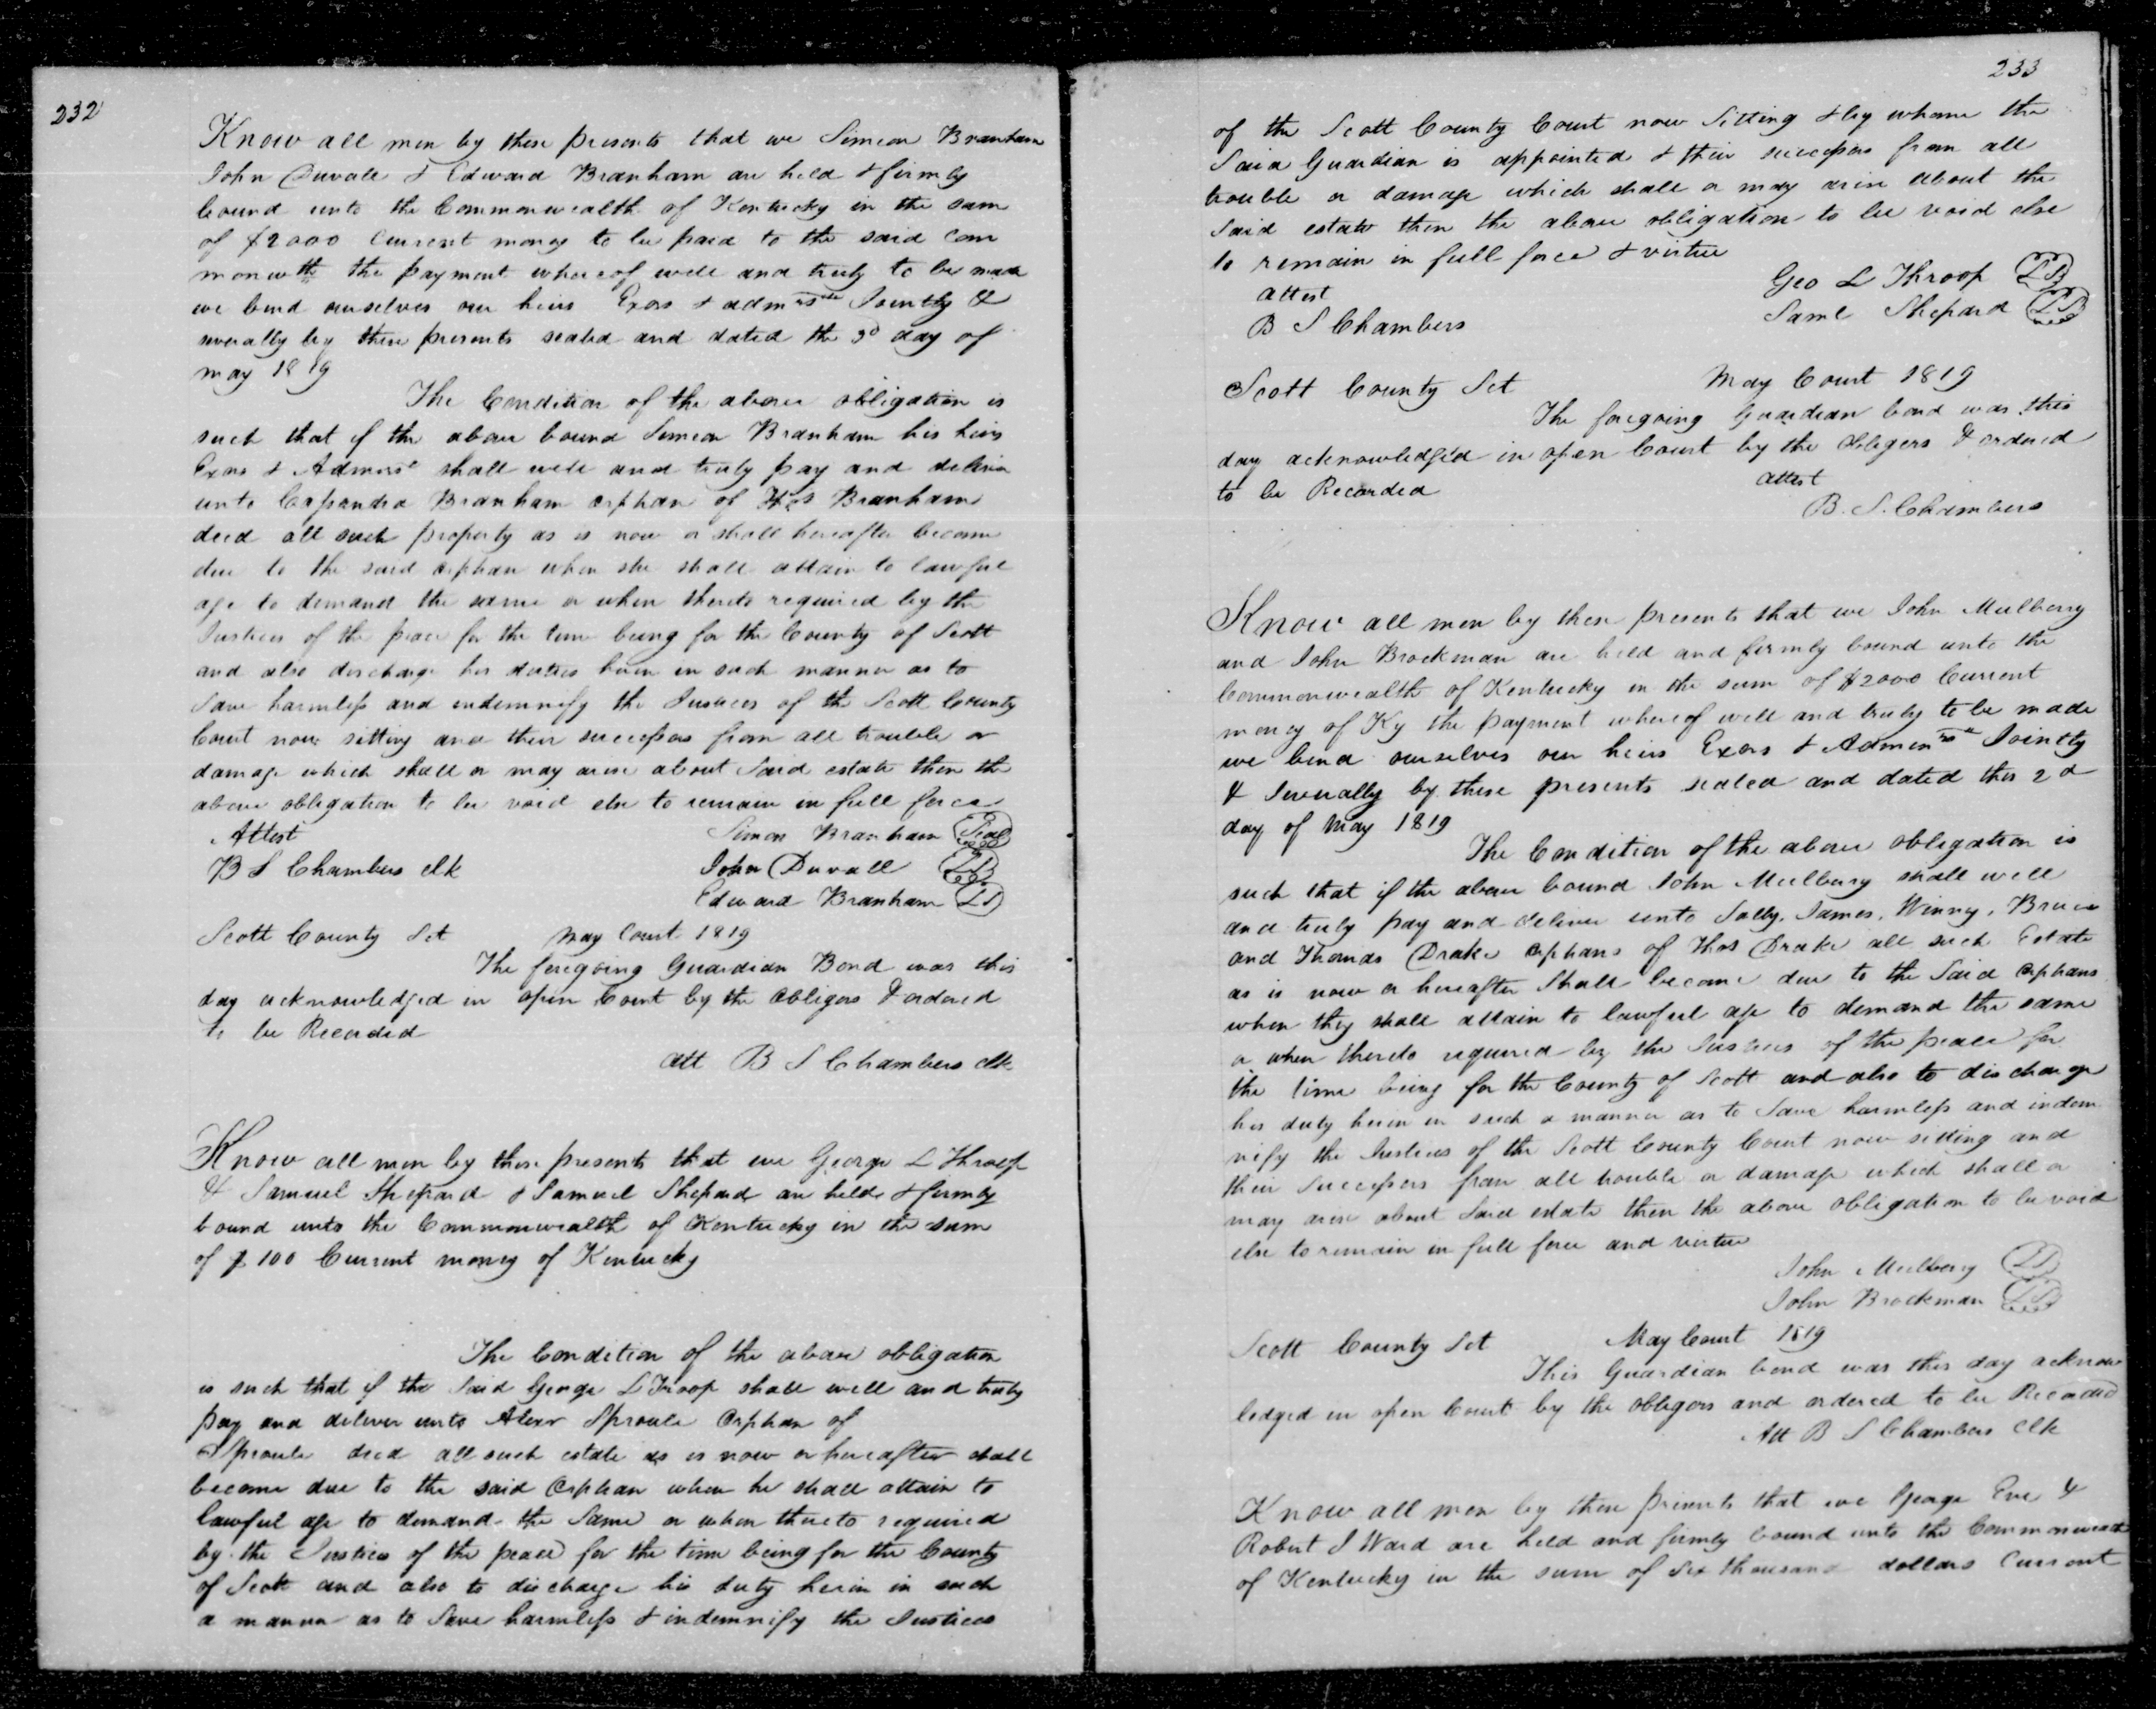 232
Know all men by these presents that we Simeon Branham
John Duvall & Edward Branham are held & firmly
bound unto the Commonwealth of Kentucky in the sum
of $2000 Current money to be paid to the said Com
monwth the payment whereof well and truly to be made
we bind ourselves our heirs Exors & admrs Jointly &
severally by these presents sealed and dated the 3d day of
may 1819
The Condition of the above obligation is
such that if the above bound Simeon Branham his heirs
Exors & Admrs shall well and truly pay and deliver
unto Cassandra Branham orphan of Branham
decd all such property as is now or shall hereafter become
due to the said orphan when she shall attain to lawful
age to demand the same or when thereto required by the
Justices of the peace for the time being for the County of Scott
and also discharge his duties herein in such manner as to
save harmless and indemnify the Justices of the Scott County
Court now sitting and their successors from all trouble or
damage which shall or may arise about said estate then the
above obligation to be void else to remain in full force
Attest Simeon Branham Seal
B S Chambers clk John Duvall LS
Edward Branham LS
Scott County Sct May Court 1819
The foregoing Guardian Bond was this
day acknowledged in open Court by the obligors & ordered
to be Recorded
att B S Chambers clk
Know all men by these presents that we George L Throop
& Samuel Shepard & Samuel Shepard are held & firmly
bound unto the Commonwealth of Kentucky in the sum
of $100 Current money of Kentucky
The Condition of the above obligation
is such that if the said George L Troop shall well and truly
pay and deliver unto Alexr Sproule Orphan of
Sproule decd all such estate as is now or hereafter shall
become due to the said Orphan when he shall attain to
lawful age to demand the same or when thereto required
by the Justices of the peace for the time being for the County
of Scott and also to discharge his duty herein in such
a manner as to save harmless & indemnify the Justices
233
of the Scott County Court now sitting & by whome the
said Guardian is appointed & their successors from all
trouble or damage which shall or may arise about the
said estate then the above obligation to be void else
to remain in full force & virtue
attest Geo L Throop LS
B S Chambers Saml Shepard LS
Scott County Sct May Court 1819
The foregoing Guardian bond was this
day acknowledg'd in open Court by the obligors & ordered
to be Recorded attest
B. S. Chambers
Know all men by these presents that we John Mulberry
and John Brockman are held and firmly bound unto the
Commonwealth of Kentucky in the sum of $2000 Current
money of Ky the payment whereof well and truly to be made
we bind ourselves our heirs Exors & Adminrs Jointly
& Severally by these presents sealed and dated this 2d
day of May 1819
The Condition of the above obligation is
such that if the above bound John Mulberry shall well
and truly pay and deliver unto Sally, James, Winny,
and Thomas Drake orphans of Thos Drake all such Estate
as is now or hereafter shall become due to the said orphans
when they shall attain to lawful age to demand the same
or when thereto required by the Justices of the peace for
the time being for the County of Scott and also to discharge
his duty herein in such a manner as to save harmless and indem
nify the Justices of the Scott County Court now sitting and
their successors from all trouble or damage which shall or
may arise about said estate then the above obligation to be void
else to remain in full force and virtue
John Mulberry LS
John Brockman LS
Scott County Sct May Court 1819
This Guardian bond was this day acknow
ledged in open Court by the obligors and ordered to be Recorded
Att B S Chambers clk
Know all men by these presents that we George Eve &
Robert J Ward are held and firmly bound unto the Commonwealth
of Kentucky in the sum of Six thousand dollars Current